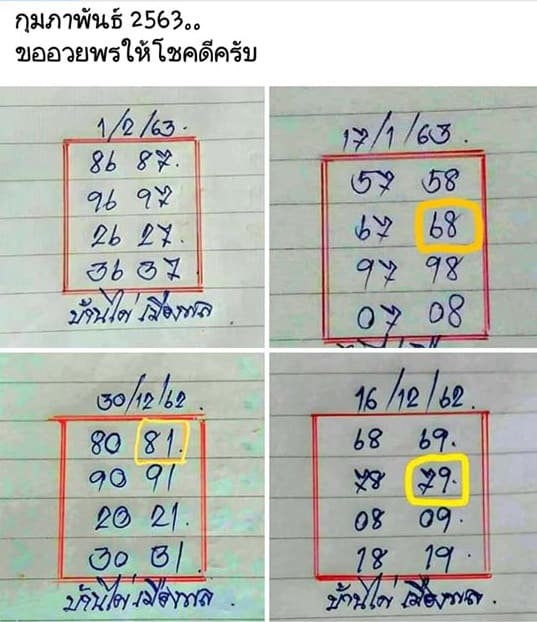 กุมภาพันธ์ 2563..
ขออวยพรให้โชคดีครับ
1/2/63.
86 87.
96 97
26 27.
36 37
บ้านไผ่ เมืองพล.
17/1/63.
57 58
67 68
97 98
07 08
30/12/62.
80 81.
90 91
20 21.
30 31
บ้านไผ่ เมืองพล.
16/12/62.
68 69.
78 79.
08 09.
18 19.
บ้านไผ่ เมืองพล.